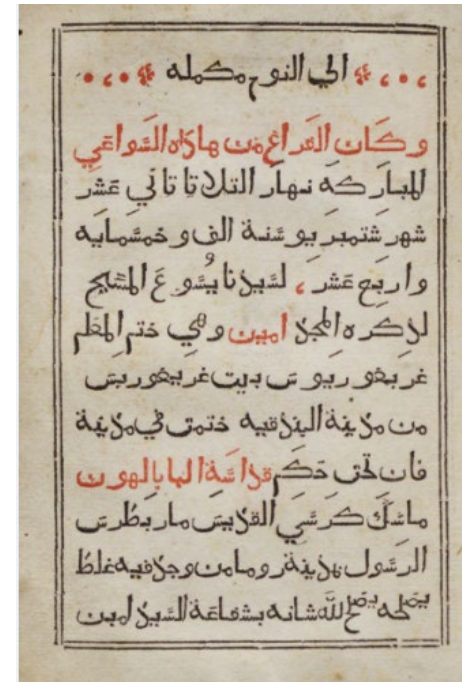 الي النوم مكمله
وكان الفراغ من هاذه السواعي
المباركه نهار التلاتا تاني عشر
شهر شتمبريو سنة الف وخمسمايه
واربع عشر ، لسيدنا يسوع المسيح
لذكره المجد امين وهي ختم المعلم
غريغوريوس بيت غريغوريس
من مدينة البندقيه ختمت في مدينة
فان تحت حكم قداسة البابا لهون
ماسك كرسي القديس مار بطرس
الرسول بمدينة روما من وجد فيه غلط
يصلحه يصلح الله شانه بشفاعة السيد امين